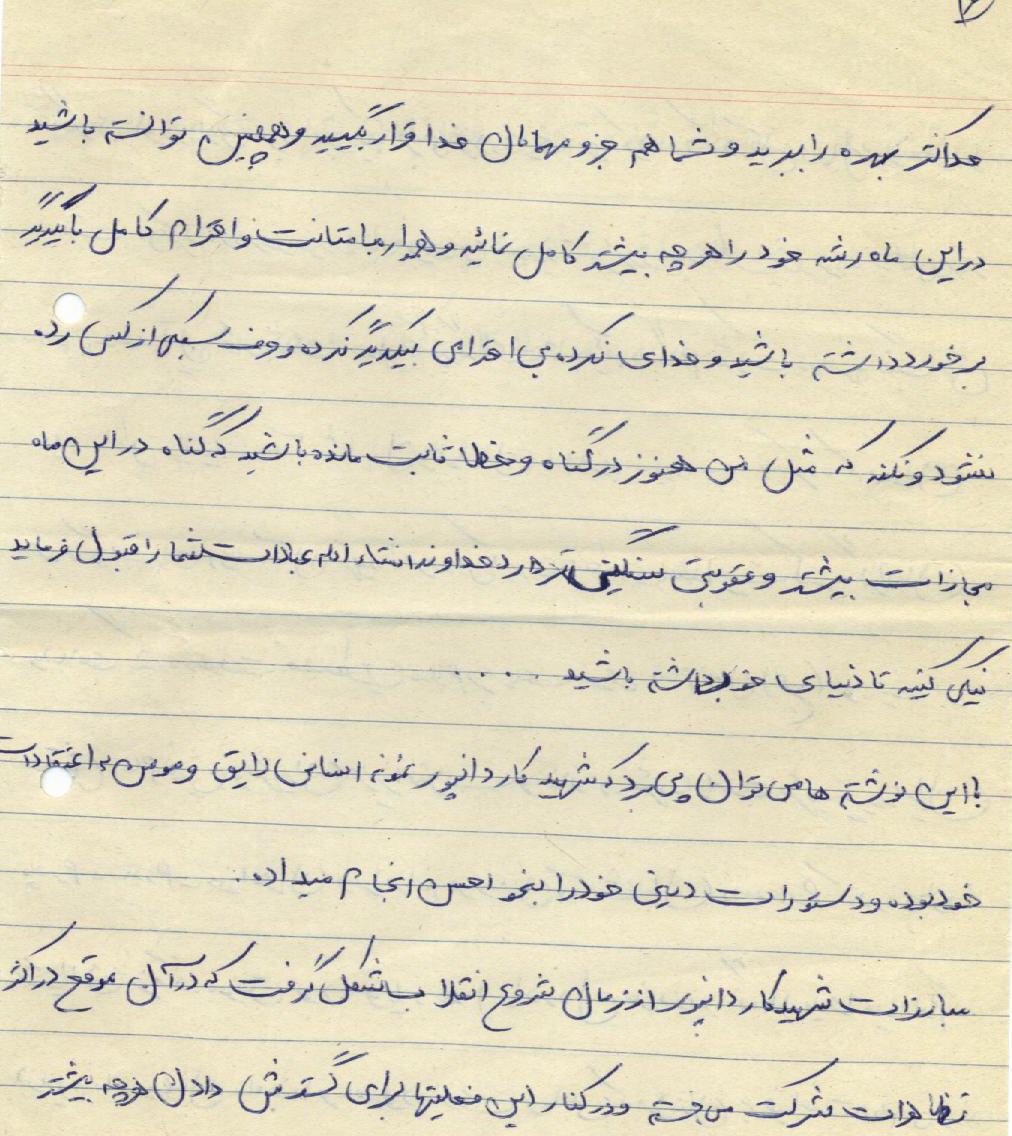 حداکثر بهره را ببرید و شما هم جزو مهمانان خدا قرار بگیرید و همچنین توانسته باشید
در این ماه رشد خود را هر چه بیشتر کامل نمائید و هموار با متانت و احترام کامل با یکدیگر
برخورد داشته باشید و خدای نکرده بی احترامی بیکدیگر نکرده و حرف سبکی از کسی رد.
نشود و نکند که مثل من هنوز در گناه و خطا ثابت مانده باشید که گناه در این ماه
مجازات بیشتر و عقوبتی سنگینی تر دارد خداوند انشاء الله عبادات شما را قبول فرماید
نیکی کنید تا دنیای خوب داشته باشید .....
با این نوشته ها می توان پی برد که شهید کاردانپور نمونه انسانی لایق و مومن به اعتقادات
خود بوده و دستورات دینی خود را بنحو احسن انجام میداد.
مبارزات شهید کاردانپور از زمان شروع انقلاب شکل گرفت که در آن موقع در اکثر
تظاهرات شرکت می جسته و در کنار این فعلیتها برای گسترش دادن هر چه بیشتر